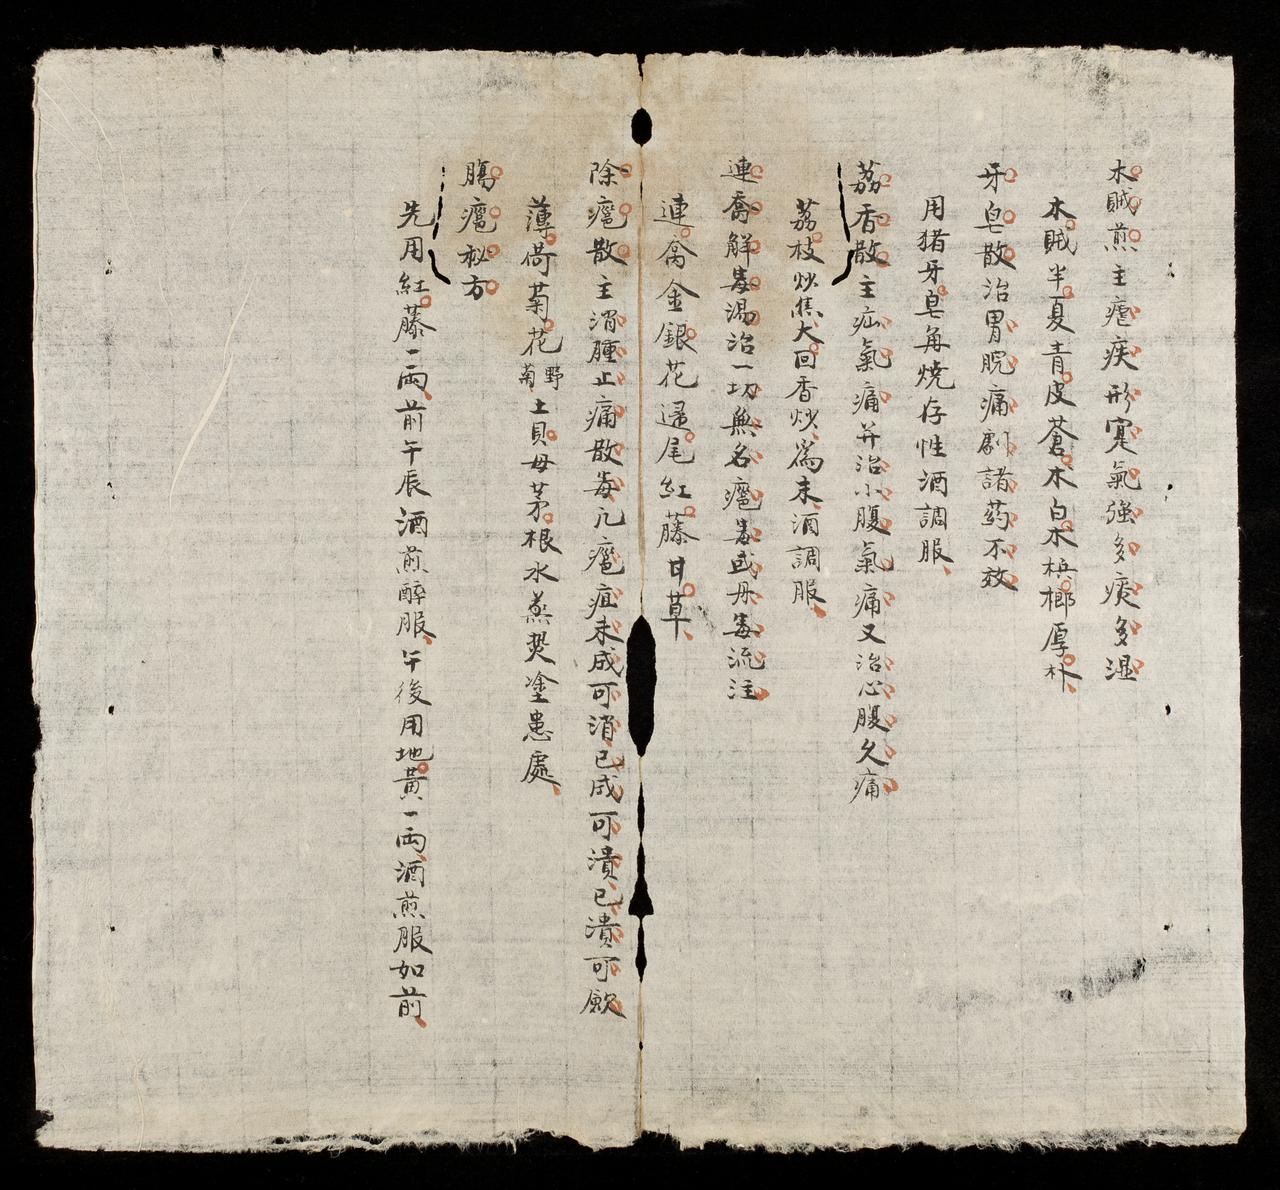 木賊煎主瘧疾形寔氣強多痰多湿
木賊半夏青皮蒼术白术梹榔厚朴
牙皂散治胃脘痛劇諸药不效
用猪牙皂角燒存性酒調服
荔香散主疝氣痛并治小腹氣痛又治心腹久痛
荔枝炒焦大回香炒為末酒調服
連喬解毒湯治一切無名癰毒或丹毒流注
連喬金銀花歸尾紅藤甘草
除癰散主消腫止痛散毒凢癰疽未成可消已成可潰已潰可歛
薄荷菊花野菊土貝母茅根水蒸熨塗患處
腸癰秘方
先用紅藤一兩前午辰酒煎醉服午後用地黃一兩酒煎服如前